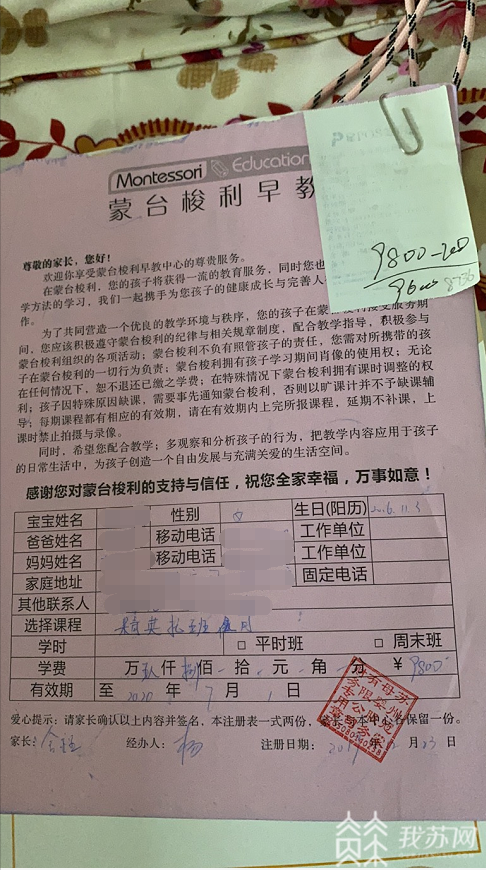 Montessori Education
蒙台梭利早教
9800-200
9600
尊敬的家长，您好！
欢迎你享受蒙台梭利早教中心的尊贵服务。
在蒙台梭利，您的孩子将获得一流的教育服务，同时您也
学方法的学习，我们一起携手为您孩子的健康成长与完善人
作。
为了共同营造一个优良的教学环境与秩序，您的孩子在蒙台梭利接受服务期
间，您应该积极遵守蒙台梭利的纪律与相关规章制度，配合教学指导，积极参与
蒙台梭利组织的各项活动；蒙台梭利不负有照管孩子的责任，您需对所携带的孩
子在蒙台梭利的一切行为负责；蒙台梭利拥有孩子学习期间肖像的使用权；无论
在任何情况下，恕不退还已缴之学费；在特殊情况下蒙台梭利拥有课时调整的权
利；孩子因特殊原因缺课，需要事先通知蒙台梭利，否则以旷课计并不予缺课辅
导；每期课程都有相应的有效期，请在有效期内上完所报课程，延期不补课，上
课时禁止拍摄与录像。
同时，希望您配合教学；多观察和分析孩子的行为，把教学内容应用于孩子
的日常生活中，为孩子创造一个自由发展与充满关爱的生活空间。
感谢您对蒙台梭利的支持与信任，祝您全家幸福，万事如意！
宝宝姓名 性别 生日(阳历)
爸爸姓名 移动电话 工作单位
妈妈姓名 移动电话 工作单位
家庭地址 固定电话
其他联系人
选择课程
学时 □ 平时班 □ 周末班
学费 万 玖 仟 捌 佰 - 拾 元 角 分 ¥ 9800
有效期 至 2020 年 7 月 1 日
爱心提示：请家长确认以上内容并签名，本注册表一式两份，家长与本中心各保留一份。
家长： 经办人：杨 注册日期： 年 月 23 日
我苏网